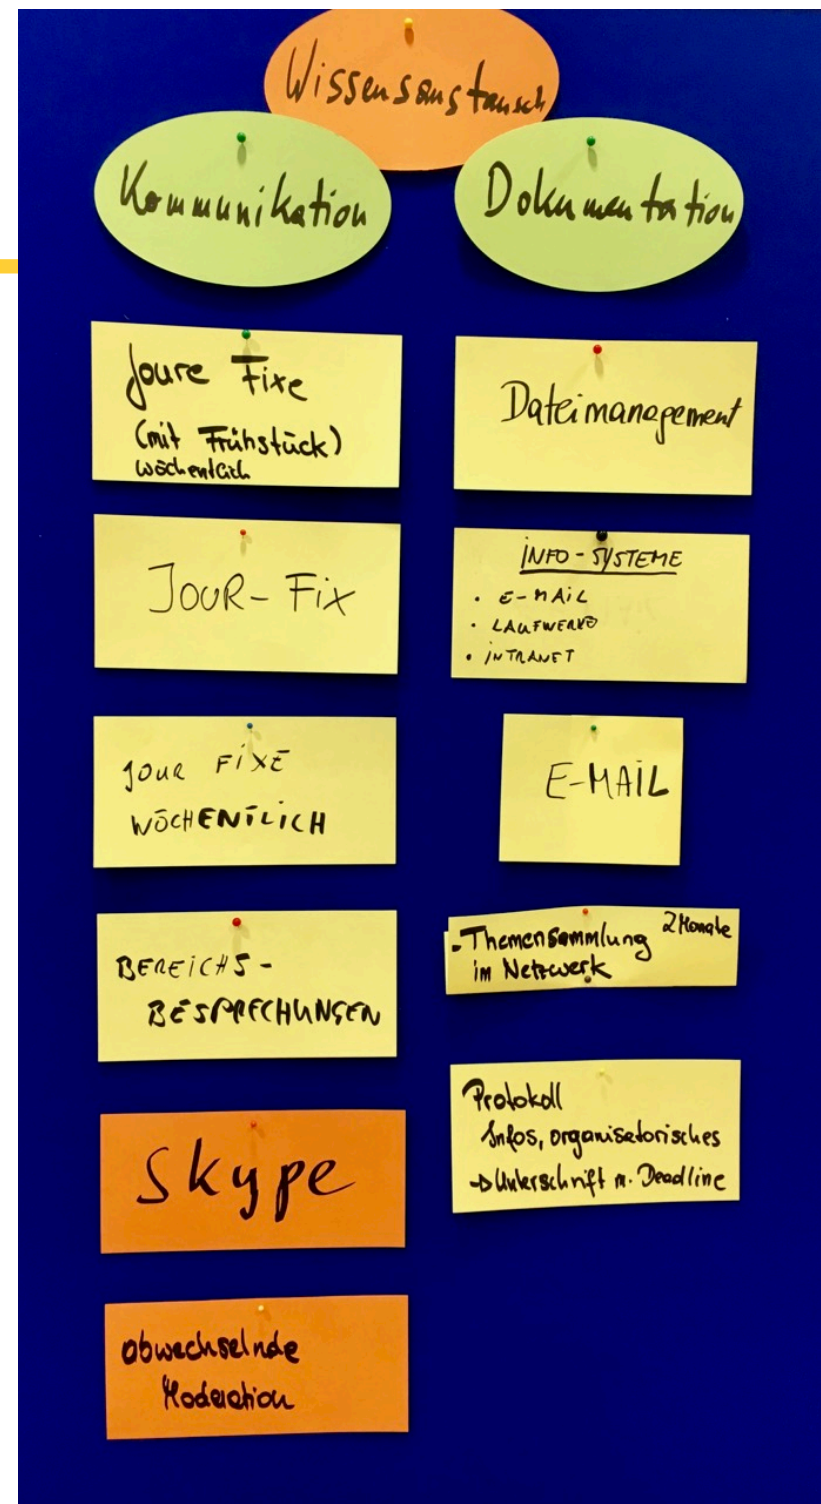 Wissensaustausch
Kommunikation
Joure Fixe
(mit Frühstück)
wöchentlich
JOUR-FiX
JOUR FiXE
WÖCHENTLICH
BEREiCHS-
BESPRECHUNGEN
Skype
abwechselnde
Moderation
Dokumentation
Dateimanagement
iNFO-SYSTEME
• E-MAiL
• LAUFWERKE
• iNTRANET
E-MAiL
- Themensammlung 2 Monate
im Netzwerk
Protokoll
Infos, organisatorisches
→ Unterschrift m. Deadline